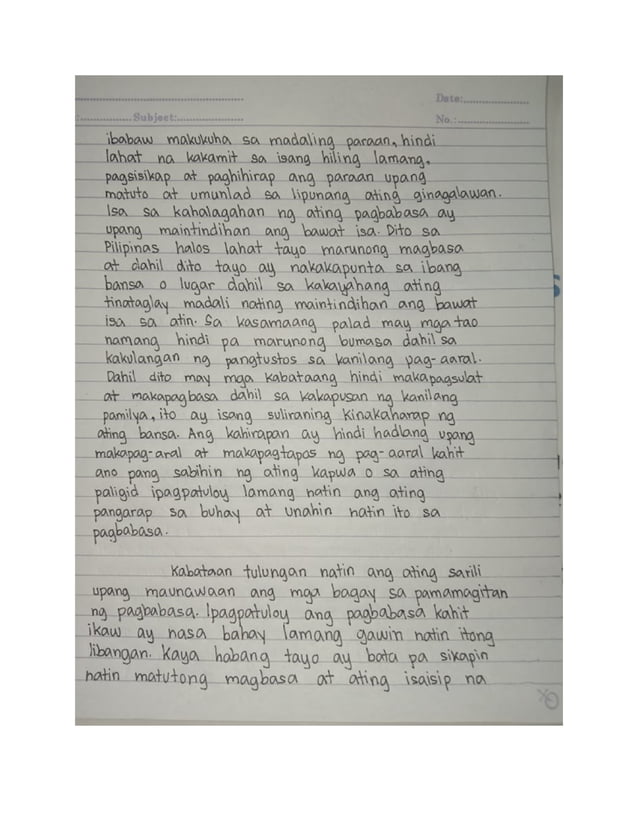 Date:
Subject:
No.:
ibabaw makukuha sa madaling paraan, hindi
lahat na kakamit sa isang hiling lamang,
pagsisikap at paghihirap ang paraan upang
matuto at umunlad sa lipunang ating ginagalawan.
Isa sa kahalagahan ng ating pagbabasa ay
upang maintindihan ang bawat isa. Dito sa
Pilipinas halos lahat tayo marunong magbasa
at dahil dito tayo ay nakakapunta sa ibang
bansa o lugar dahil sa kakayahang ating
tinataglay madali nating maintindihan ang bawat
isa sa atin. Sa kasamaang palad may mga tao
namang hindi pa marunong bumasa dahil sa
kakulangan ng pangtustos sa kanilang pag-aaral.
Dahil dito may mga kabataang hindi makapagsulat
at makapagbasa dahil sa kakapusan ng kanilang
pamilya, ito ay isang suliraning kinakaharap ng
ating bansa. Ang kahirapan ay hindi hadlang upang
makapag-aral at makapagtapos ng pag-aaral kahit
ano pang sabihin ng ating kapwa o sa ating
paligid ipagpatuloy lamang natin ang ating
pangarap sa buhay at unahin natin ito sa
pagbabasa.
Kabataan tulungan natin ang ating sarili
upang maunawaan ang mga bagay sa pamamagitan
ng pagbabasa. Ipagpatuloy ang pagbabasa kahit
ikaw ay nasa bahay lamang gawin natin itong
libangan. Kaya habang tayo ay bata pa sikapin
natin matutong magbasa at ating isaisip na